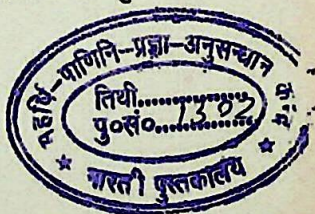 महर्षि-पाणिनि-प्रज्ञा-अनुसन्धान
तिथी..................
पु०सं०...1302...
भारती पुस्तकालय